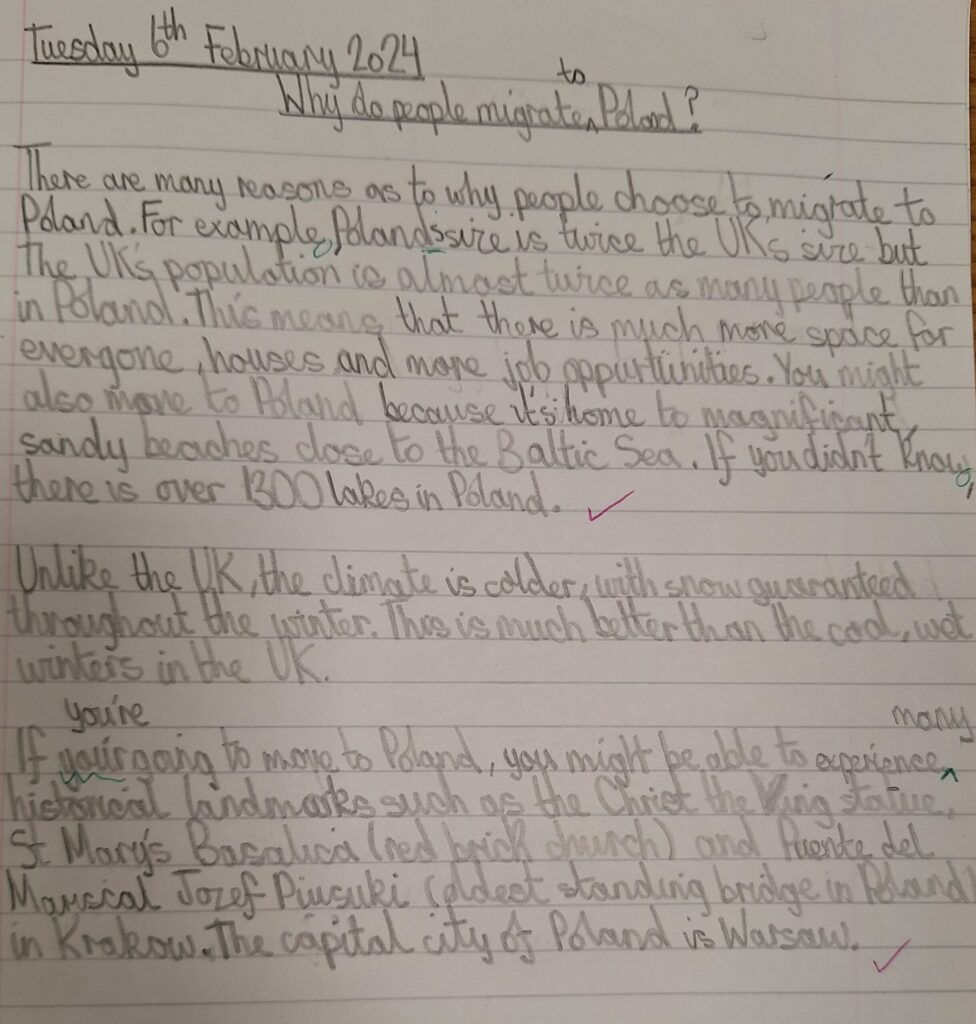 Tuesday 6th February 2024
to
Why do people migrate ^ Poland?
There are many reasons as to why people choose to migrate to
Poland. For example, Poland's size is twice the UK's size but
the UK's population is almost twice as many people than
in Poland. This means that there is much more space for
everyone, houses and more job oppurtiinities. You might
also move to Poland because it's home to magnificant,
sandy beaches close to the Baltic Sea. If you didn't know,
there is over 1300 lakes in Poland.
Unlike the UK, the climate is colder, with snow guaranteed
throughout the winter. This is much better than the cool, wet
winters in the UK.
you're many
If your going to move to Poland, you might be able to experience ^
historical landmarks such as the Christ the King statue,
St Mary's Basalica (red brick church) and Puente del
Marscal Jozef Piusuki (oldest standing bridge in Poland)
in Krakow. The capital city of Poland is Warsaw.